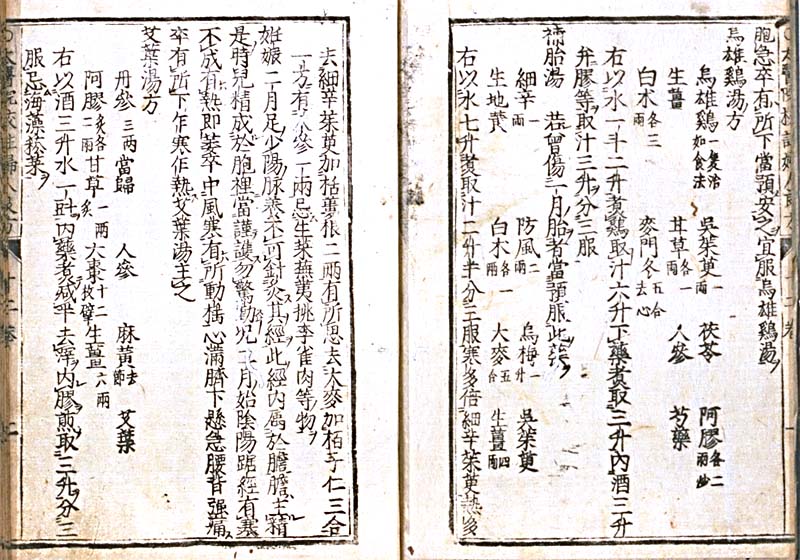 胞急卒有所下當預安之宜服烏雄鷄湯
烏雄鷄湯方
烏雄鷄一隻治如食法 吳茱萸一兩 茯苓 阿膠各二兩炒
生薑 甘草各一兩 人參 芍藥
白朮各三兩 麥門冬五合去心
右以水一斗二升煮鷄取汁六升下藥煮取三升內酒三升
幷膠等取汁三升分三服
補胎湯 若曾傷一月胎者當預服此
細辛一兩 防風二兩 烏梅一升 吳茱萸
生地黃 白朮各一兩 大麥五合 生薑四兩
右以水七升煮取汁二升半分三服寒多倍細辛茱萸熱多
去細辛茱萸加栝蔞根二兩有所思去大麥加栢子仁三合
一方有人參一兩忌生菜蕪荑桃李雀肉等物
妊娠二月足少陽脉養不可針灸其經此經內屬於膽膽主精
是時兒精成於胞裡當謹護勿驚動兒二月始陰陽踞經有寒
不成有熱即萎卒中風寒有所動搖心滿臍下懸急腰背強痛
卒有所下乍寒乍熱艾葉湯主之
艾葉湯方
丹參三兩 當歸 人參 麻黃去節 艾葉
阿膠炙各二兩 甘草炙一兩 大棗十二枚擘 生薑六兩
右以酒三升水一斗內藥煮減半去滓內膠煎取三升分三
服忌海藻菘菜